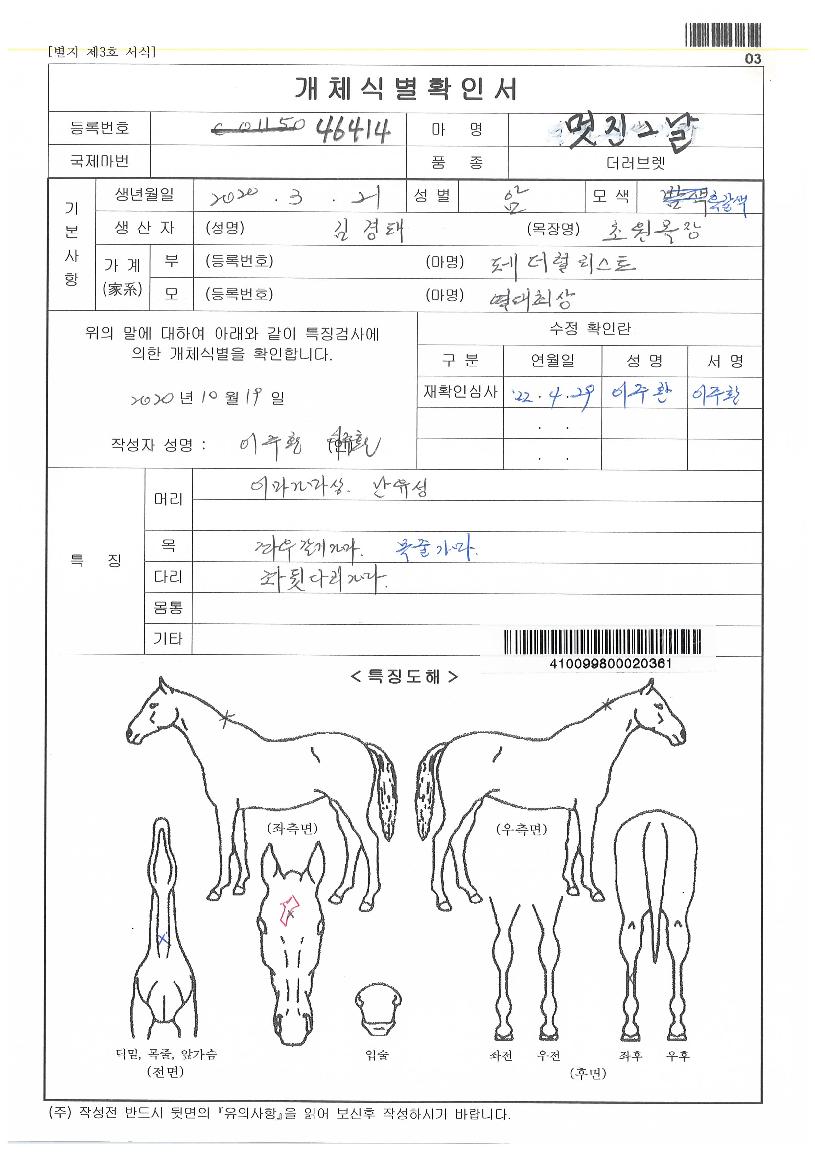 [별지 제3호 서식]
03
개체식별확인서
등록번호 46414 마 명 멋진그날
국제마번 품 종 더러브렛
기본사항
생년월일 2020 . 3 . 21 성 별 암 모 색 흑갈색
생 산 자 (성명) 김경태 (목장명) 초원목장
가 계 (家系) 부 (등록번호) (마명) 페더럴리스트
모 (등록번호) (마명) 역대최상
위의 말에 대하여 아래와 같이 특징검사에
의한 개체식별을 확인합니다.
2020 년 10 월 19 일
작성자 성명 : 이주환 (인)
수정 확인란
구 분 연월일 성 명 서 명
재확인심사 '22 . 4 . 29 이주환 이주환
. .
. .
특 징
머리 이마가마상. 난유성
목 좌우갈기가마. 목줄가마.
다리 좌뒷다리가마.
몸통
기타
410099800020361
<특징도해>
(좌측면) (우측면)
턱밑, 목줄, 앞가슴 입술 좌전 우전 좌후 우후
(전면) (후면)
(주) 작성전 반드시 뒷면의 『유의사항』을 읽어 보신후 작성하시기 바랍니다.